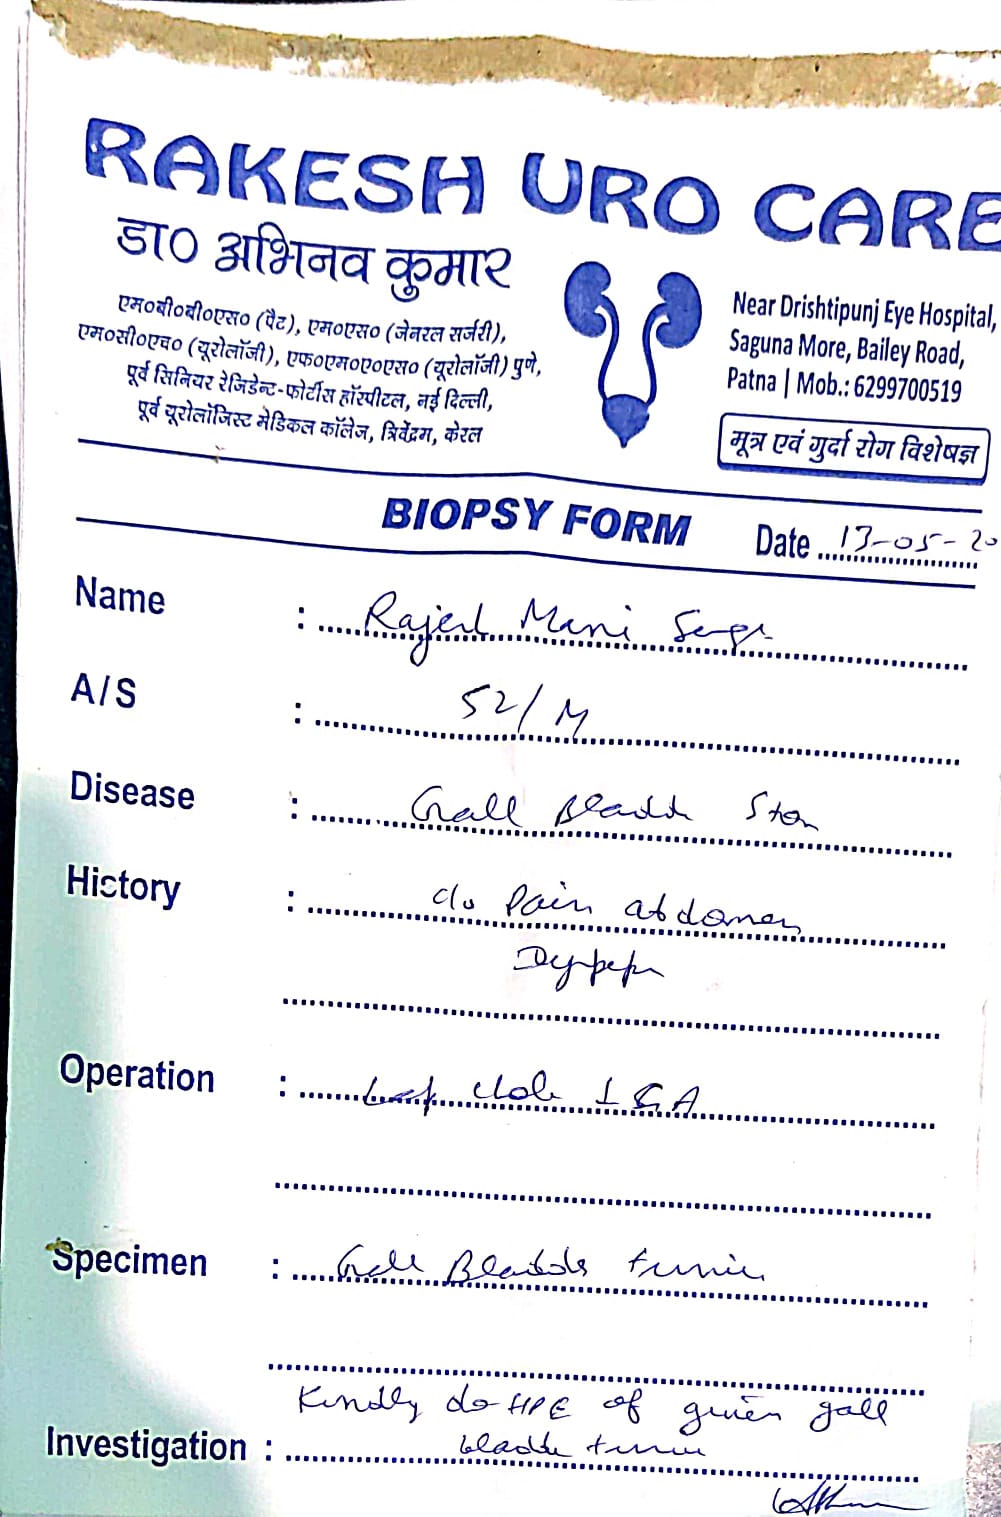 RAKESH URO CARE
डा० अभिनव कुमार
एम०बी०बी०एस० (पैट), एम०एस० (जेनरल सर्जरी),
एम०सी०एच० (यूरोलॉजी), एफ०एम०ए०एस० (यूरोलॉजी) पुणे,
पूर्व सिनियर रेजिडेन्ट-फोर्टीस हॉस्पीटल, नई दिल्ली,
पूर्व यूरोलॉजिस्ट मेडिकल कॉलेज, त्रिवेंद्रम, केरल
Near Drishtipunj Eye Hospital,
Saguna More, Bailey Road,
Patna | Mob.: 6299700519
मूत्र एवं गुर्दा रोग विशेषज्ञ
BIOPSY FORM Date 13-05-20
Name : Mani
A/S : 52/M
Disease : Gall Bladde Ston
History : c/o Pain abdomen
Operation : Lap
Specimen : Gall Bladder
Kindly do HPE of given gall
Investigation : bladde